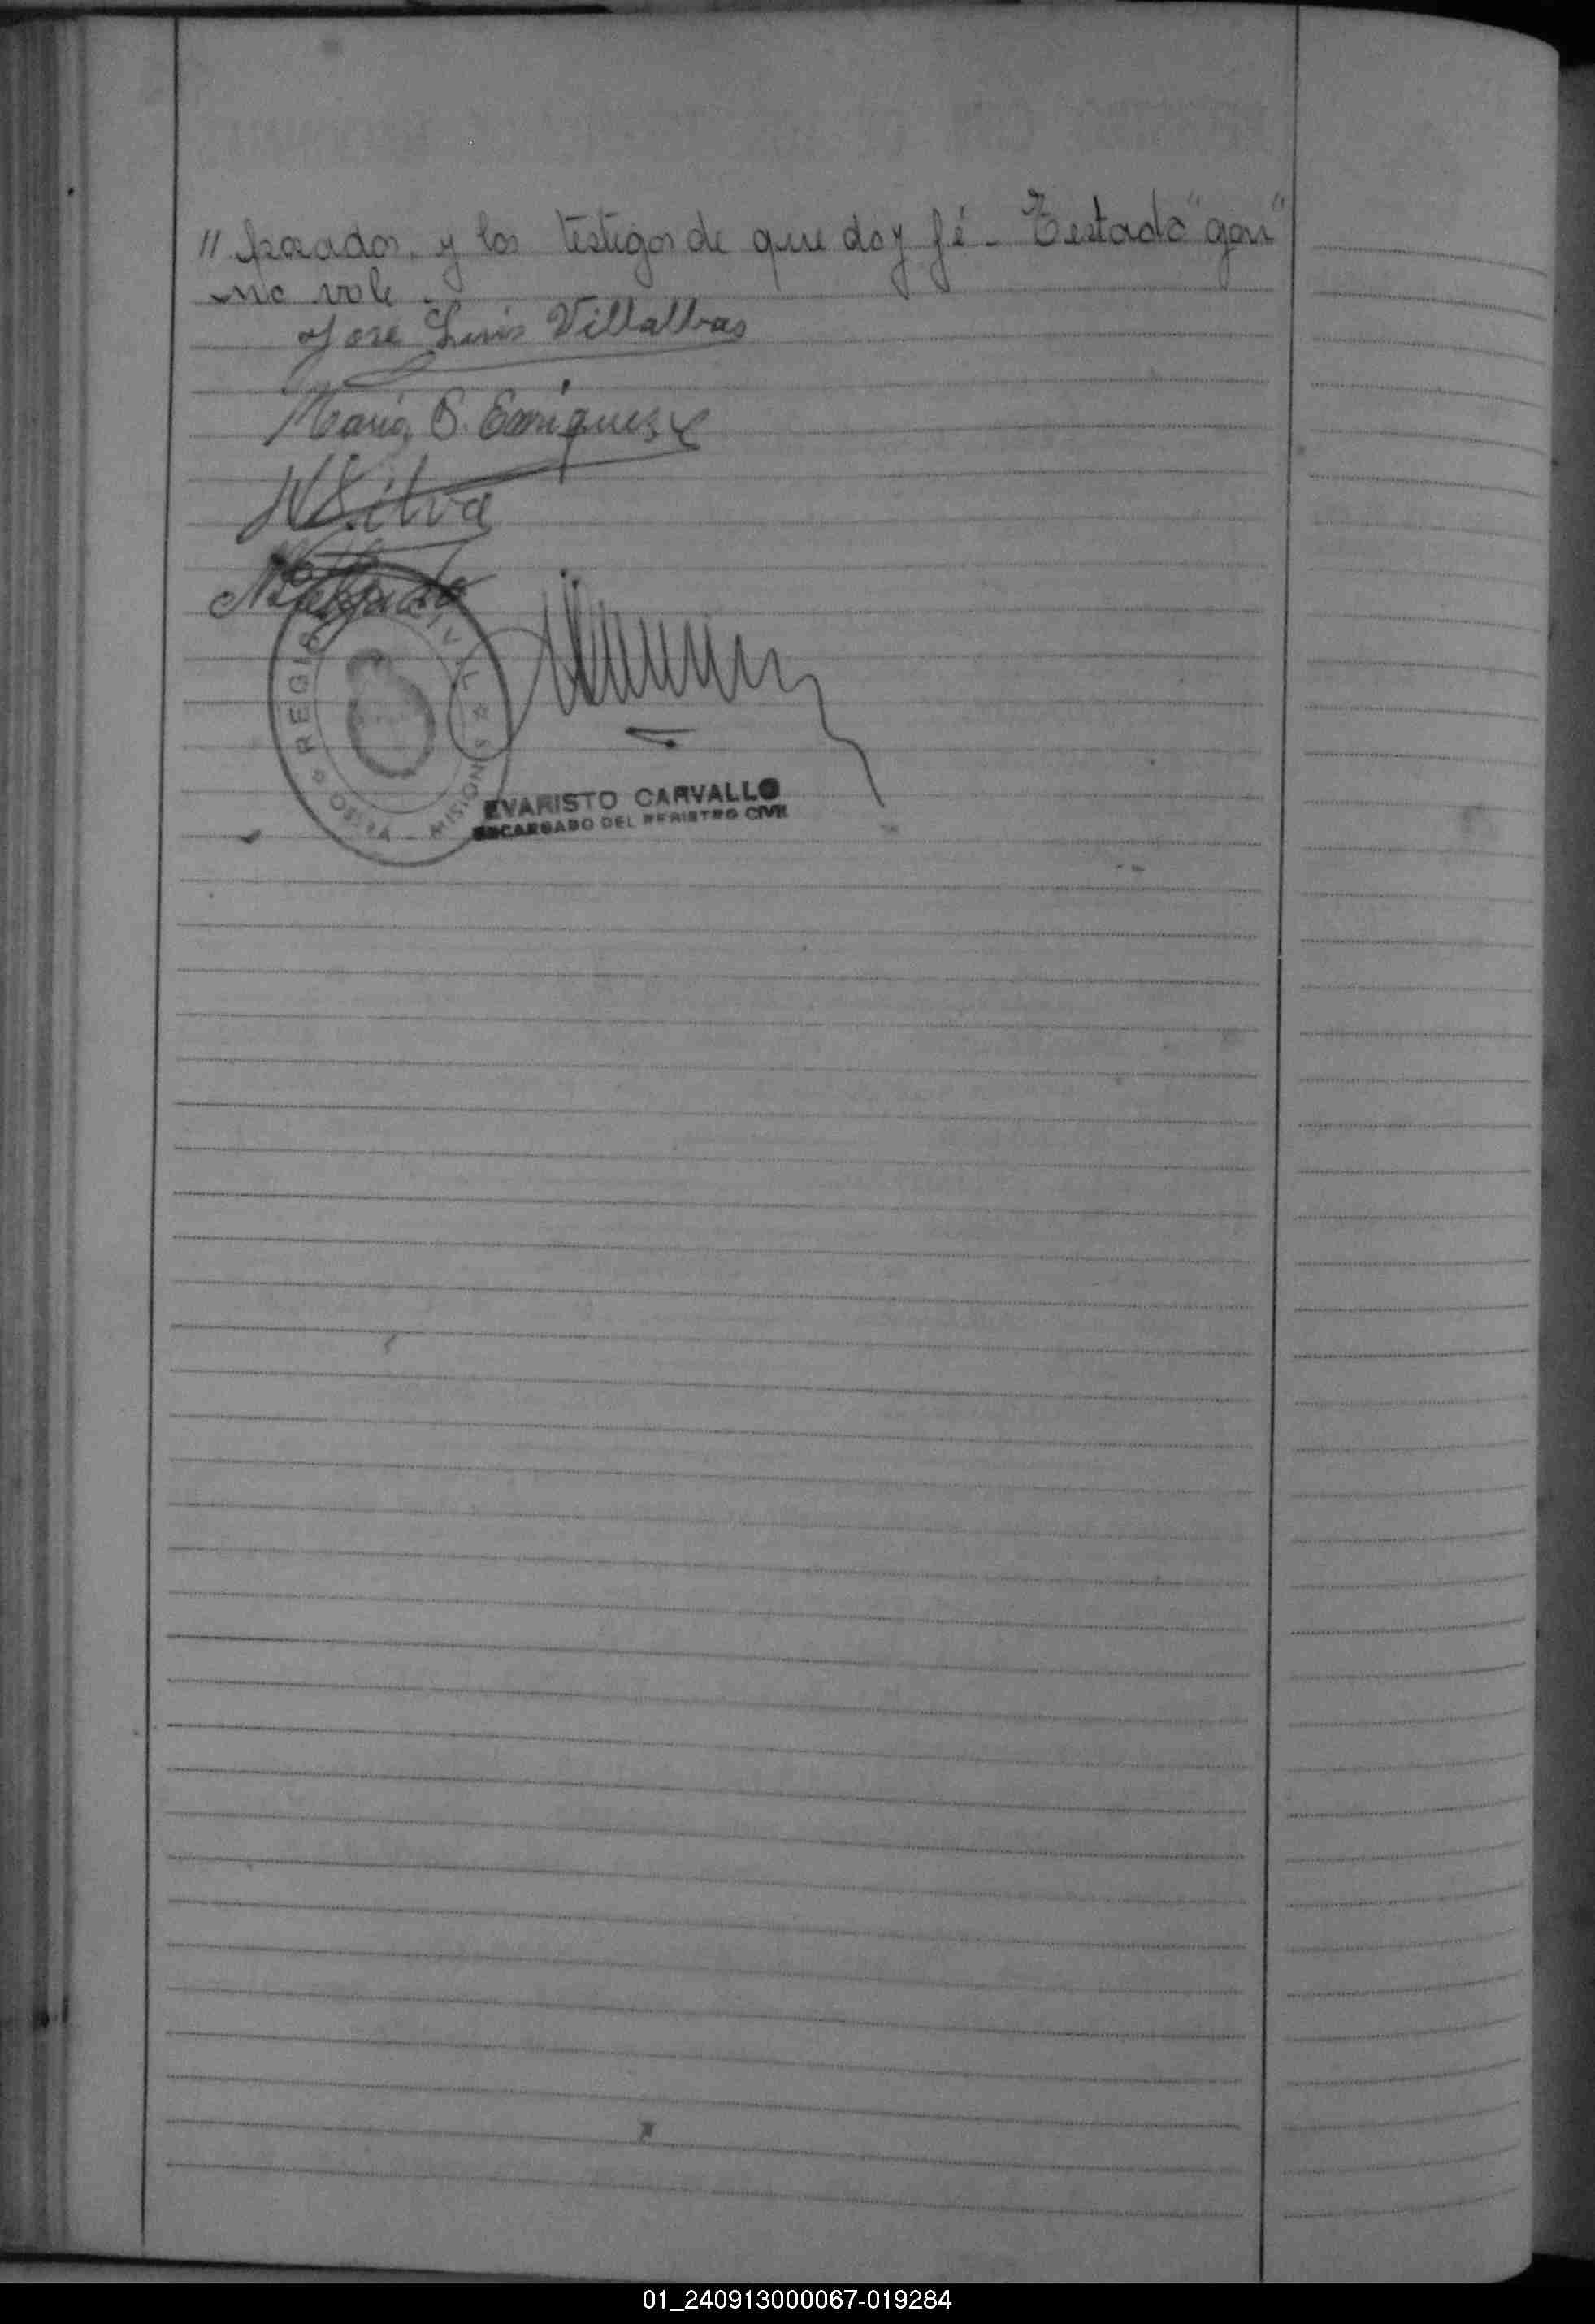 " forados, y los testigos de que doy fé - Testado "gon"
no vale -
Jose Luis Villalbas
Maria S. Enriquez
N Silva
REGIS CIVIL ☆ MISIONES
EVARISTO CARVALLO
ENCARGADO DEL REGISTRO CIVIL
01_240913000067-019284